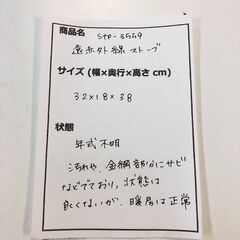 商品名
STP-3559
遠赤外線ストーブ
サイズ (幅×奥行×高さ cm)
32×18×38
状態
年式不明
汚れや、金網部分にサビ
などでており、状態は
良くないが、暖房は正常